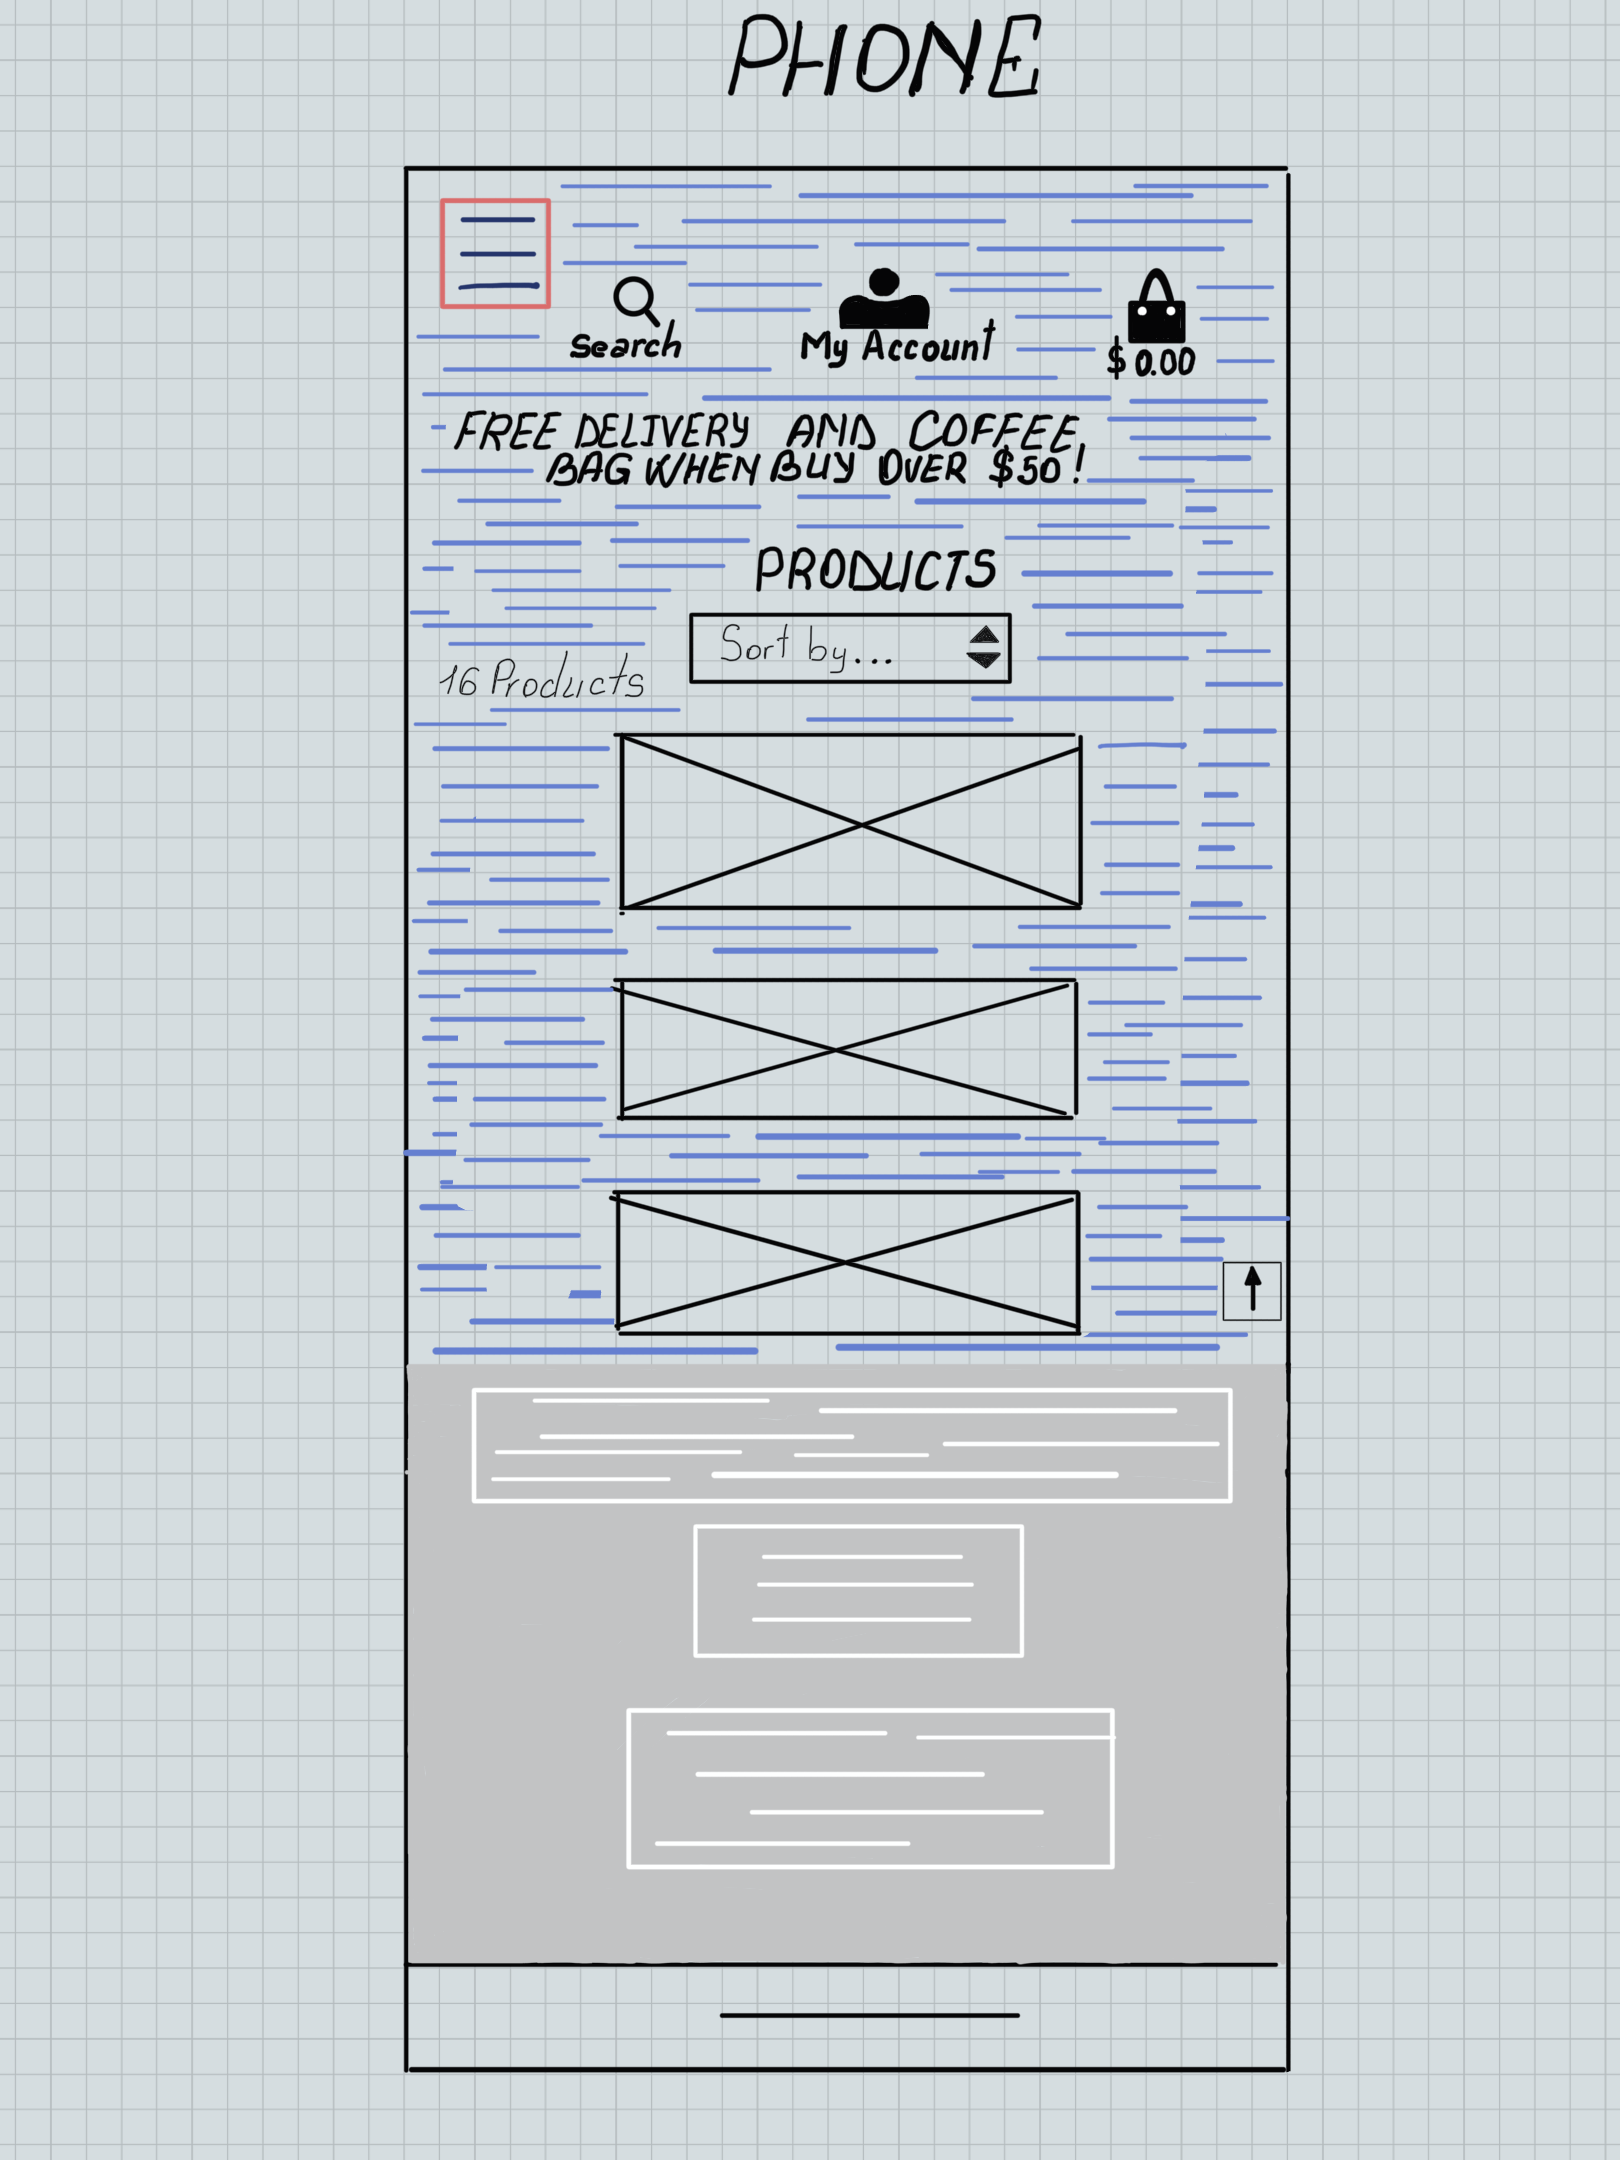 PHONE
Search
My Account
$ 0.00
FREE DELIVERY AND COFFEE
BAG WHEN BUY OVER $50!
PRODUCTS
Sort by...
16 Products